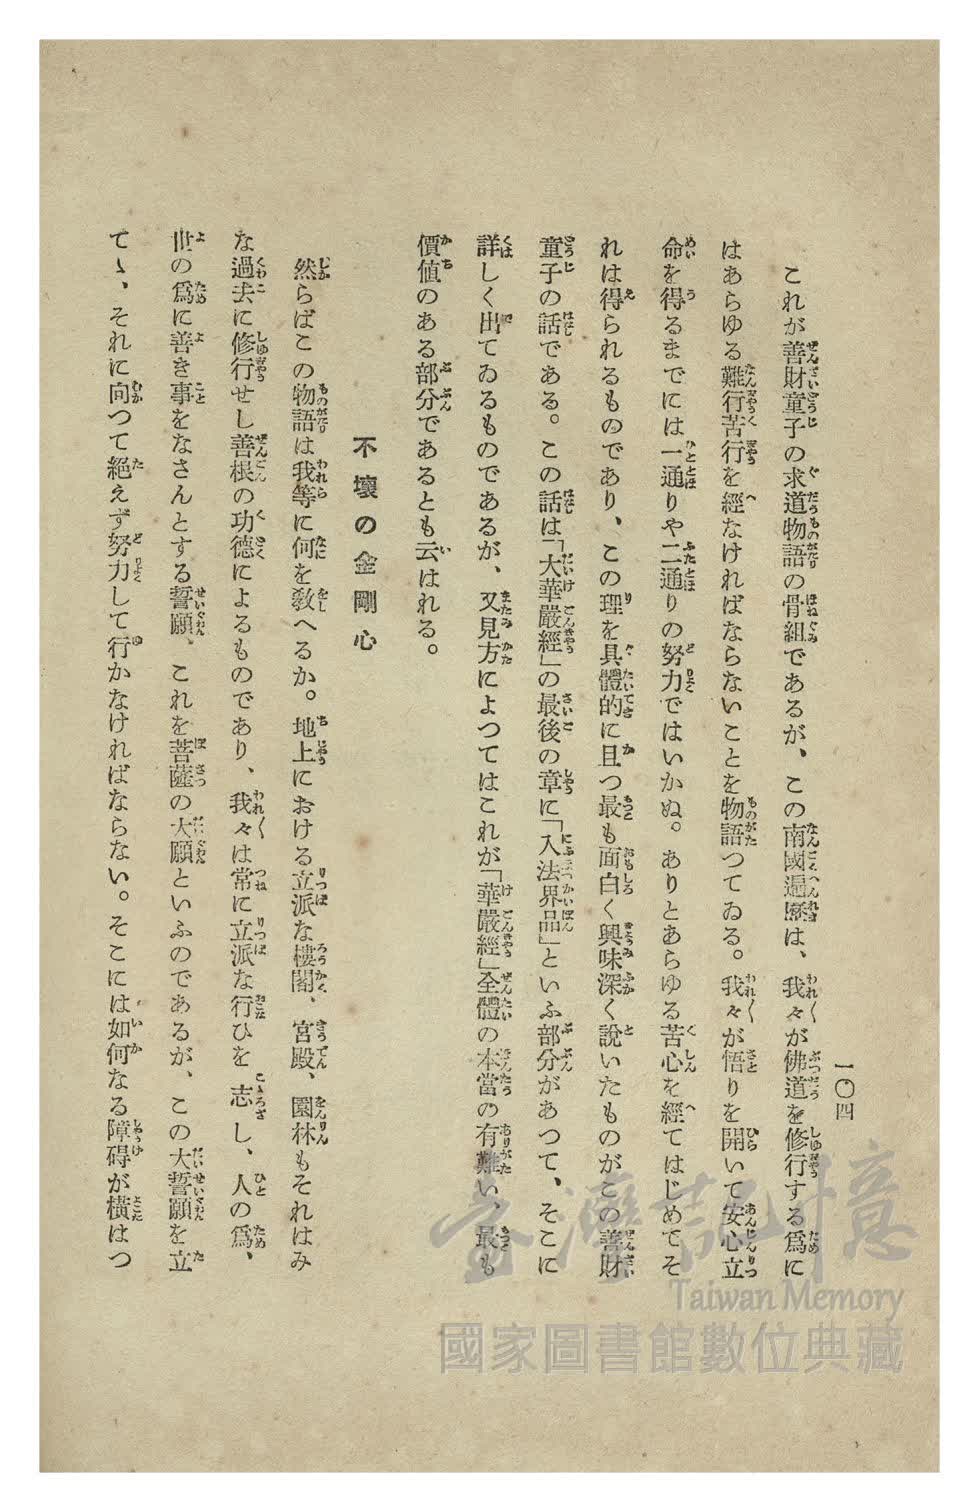 一〇四
これが善財童子の求道物語の骨組であるが、この南國遍歷は、我々が佛道を修行する爲に
はあらゆる難行苦行を經なければならないことを物語つてゐる。我々が悟りを開いて安心立
命を得るまでには一通りや二通りの努力ではいかぬ。ありとあらゆる苦心を經てはじめてそ
れは得られるものであり、この理を具體的に且つ最も面白く興味深く說いたものがこの善財
童子の話である。この話は「大華嚴經」の最後の章に「入法界品」といふ部分があつて、そこに
詳しく出てゐるものであるが、又見方によつてはこれが「華嚴經」全體の本當の有難い、最も
價値のある部分であるとも云はれる。
不壞の金剛心
然らばこの物語は我等に何を敎へるか。地上における立派な樓閣、宮殿、園林もそれはみ
な過去に修行せし善根の功德によるものであり、我々は常に立派な行ひを志し、人の爲、
世の爲に善き事をなさんとする誓願、これを菩薩の大願といふのであるが、この大誓願を立
てゝ、それに向つて絕えず努力して行かなければならない。そこには如何なる障碍が橫はつ
臺灣記憶
Taiwan Memory
國家圖書館數位典藏